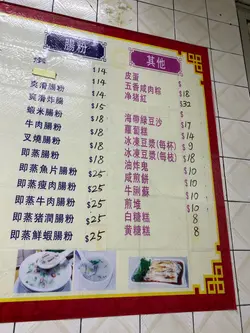 腸粉
$14
爽滑腸粉 $14
爽滑炸腸 $14
蝦米腸粉 $18
牛肉腸粉 $18
叉燒腸粉 $18
即蒸腸粉 $18
即蒸魚片腸粉 $25
即蒸瘦肉腸粉 $25
即蒸牛肉腸粉 $25
即蒸豬潤腸粉 $25
即蒸鮮蝦腸粉 $25
其他
皮蛋
五香咸肉粽
净豬紅 $32
海帶綠豆沙 $17
蘿蔔糕 $14
冰凍豆漿(每杯) $9
冰凍豆漿(每枝) $18
油炸鬼
咸煎餅 $10
牛脷蘇 $10
煎堆 $10
白糖糕 8
黄糖糕 8